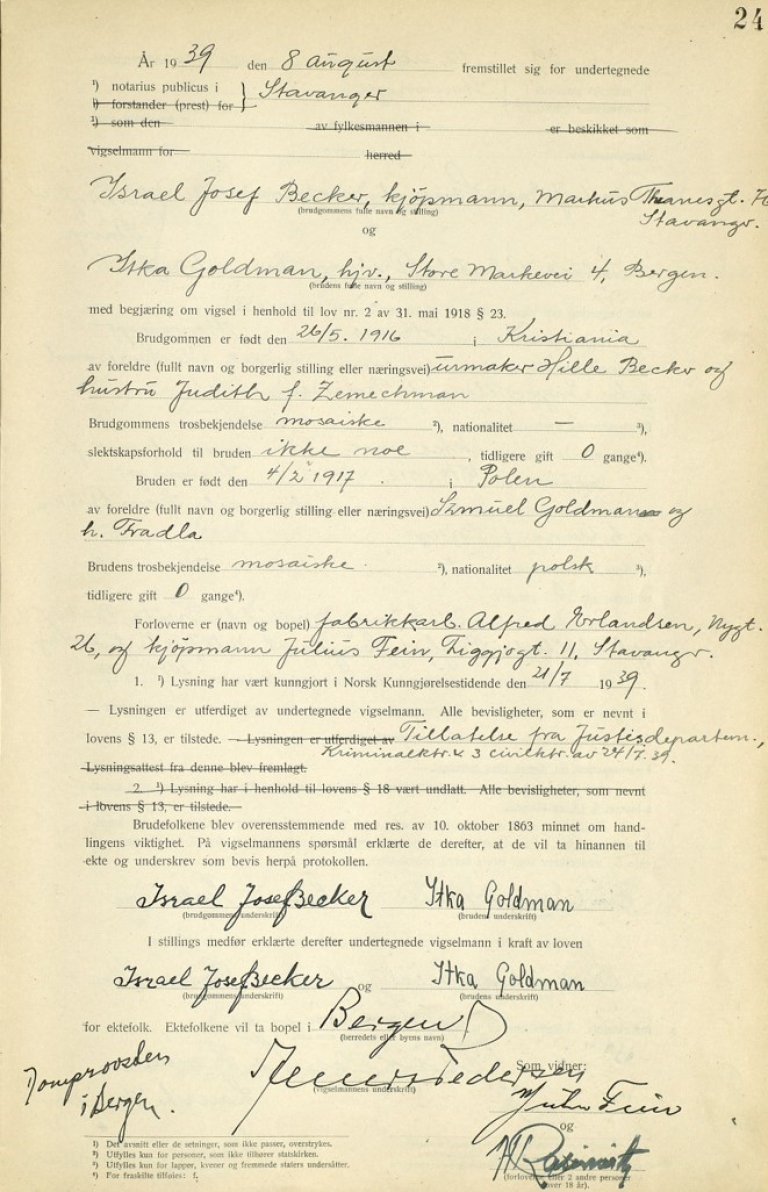 24
År 1939 den 8 august fremstillet sig for undertegnede
¹) notarius publicus i } Stavanger
¹) forstander (prest) for
¹) som den av fylkesmannen i er beskikket som
vigselmann for herred
Israel Josef Becker, kjöpmann, Markus Thranesgt.
Stavanger.
(brudgommens fulle navn og stilling)
og
Itka Goldman, hjv., Store Markevei 4, Bergen.
(brudens fulle navn og stilling)
med begjæring om vigsel i henhold til lov nr. 2 av 31. mai 1918 § 23.
Brudgommen er født den 26/5. 1916 i Kristiania
av foreldre (fullt navn og borgerlig stilling eller næringsvei) urmaker Hille Becker og
hustru Judith f. Zemechman
Brudgommens trosbekjendelse mosaiske ²), nationalitet — ³),
slektskapsforhold til bruden ikke noe, tidligere gift 0 gange⁴).
Bruden er født den 4/2 1917. i Polen
av foreldre (fullt navn og borgerlig stilling eller næringsvei) Szmuel Goldman og
h. Fradla
Brudens trosbekjendelse mosaiske. ²), nationalitet polsk ³),
tidligere gift 0 gange⁴).
Forloverne er (navn og bopel) fabrikkarb. Alfred Erlandsen, Nygt.
26, og kjöpmann Julius Fein, Ziggjogt. 11, Stavanger.
1. ¹) Lysning har vært kunngjort i Norsk Kunngjørelsestidende den 21/7 1939.
— Lysningen er utferdiget av undertegnede vigselmann. Alle bevisligheter, som er nevnt i
lovens § 13, er tilstede. — Lysningen er utferdiget av Tillatelse fra Justisdepartem.,
Kriminalktr. 3 civilktr. av 24/7. 39.
Lysningsattest fra denne blev fremlagt.
2. ¹) Lysning har i henhold til lovens § 18 vært undlatt. Alle bevisligheter, som nevnt
i lovens § 13, er tilstede.
Brudefolkene blev overensstemmende med res. av 10. oktober 1863 minnet om hand-
lingens viktighet. På vigselmannens spørsmål erklærte de derefter, at de vil ta hinannen til
ekte og underskrev som bevis herpå protokollen.
Israel Josef Becker Itka Goldman
(brudgommens underskrift) (brudens underskrift)
I stillings medfør erklærte derefter undertegnede vigselmann i kraft av loven
Israel Josef Becker og Itka Goldman
(brudgommens underskrift) (brudens underskrift)
for ektefolk. Ektefolkene vil ta bopel i Bergen
(herredets eller byens navn)
Domprovsten
i Bergen.
Som vidner:
(vigselmannens underskrift)
Julius Fein
og
(forloverne eller 2 andre personer
over 18 år).
¹) Det avsnitt eller de setninger, som ikke passer, overstrykes.
²) Utfylles kun for personer, som ikke tilhører statskirken.
³) Utfylles kun for lapper, kvener og fremmede staters undersåtter.
⁴) For fraskilte tilføies: f.